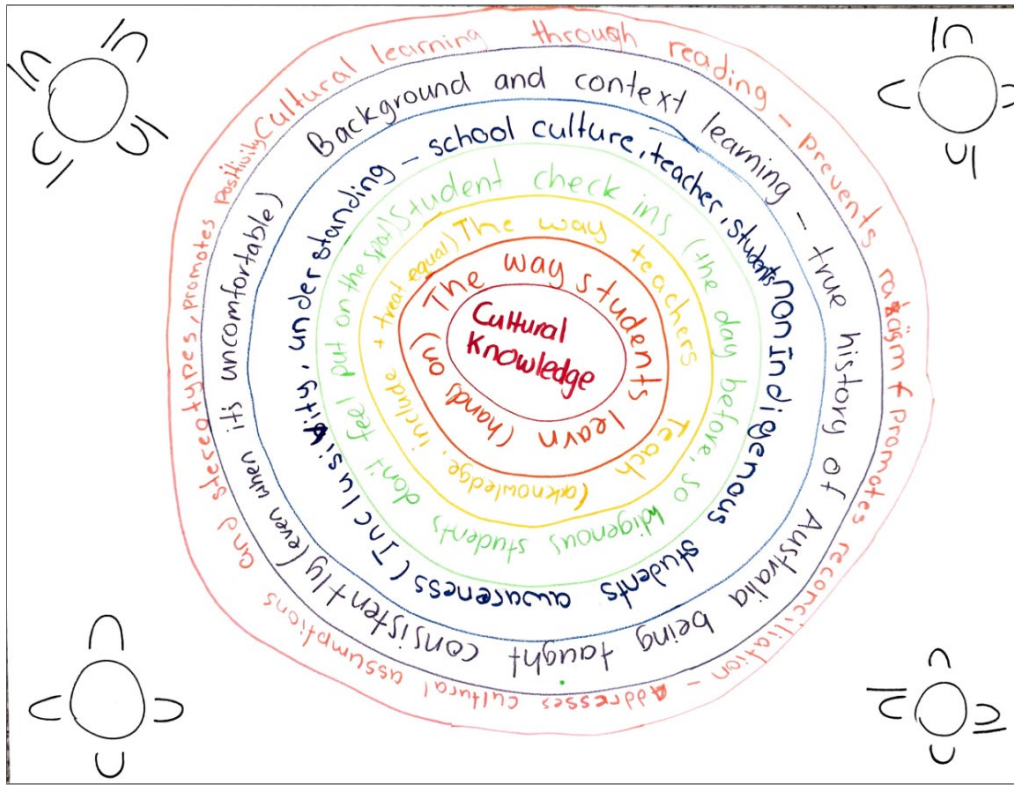 Cultural Knowledge
The way students learn (hands on)
The way teachers Teach (acknowledge, include + treat equal)
Student check ins (the day before, so Indigenous students don't feel put on the spot)
non Indigenous students awareness (Inclusivity, understanding – school culture, teacher, students
Background and context learning – true history of Australia being taught consistently (even when its uncomfortable)
Cultural learning through reading – prevents racism & promotes reconciliation – Addresses cultural assumptions and stereotypes, promotes positivity